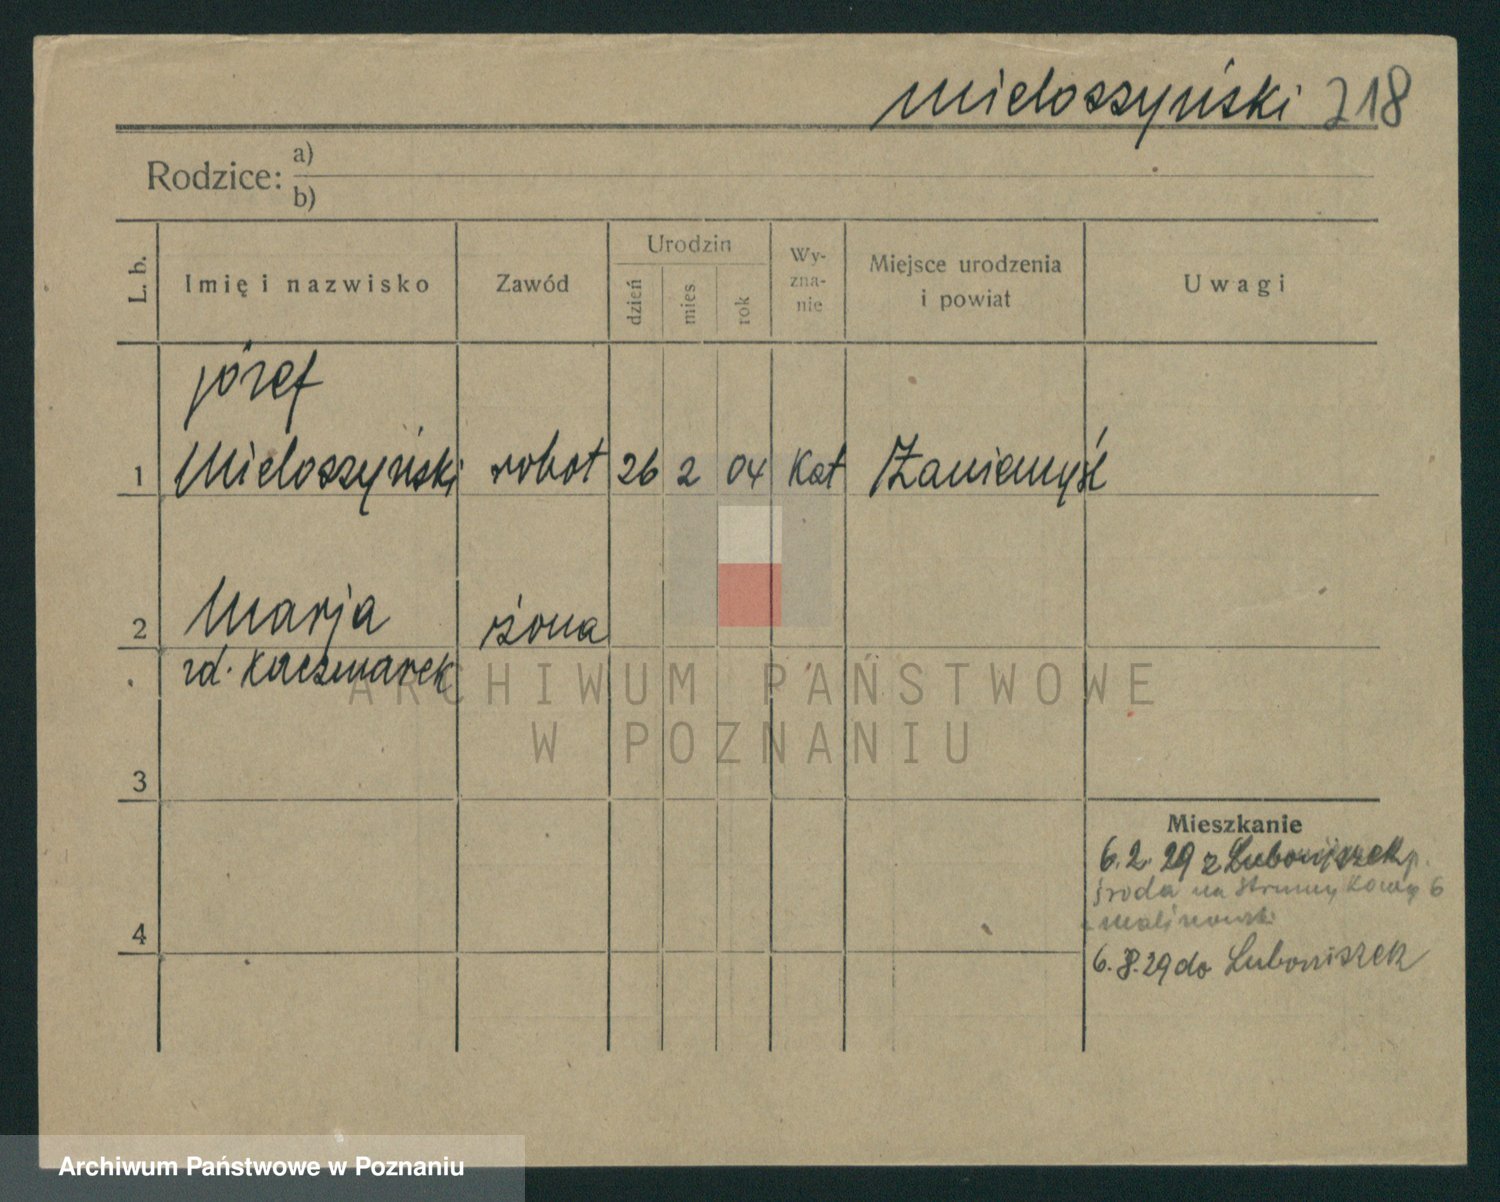 Mieloszyński 218
Rodzice: a)
b)
L. b.
Imię i nazwisko
Zawód
Urodzin
dzień
mies
rok
Wy-
zna-
nie
Miejsce urodzenia
i powiat
Uwagi
Józef
1 Mieloszyński robot 26 2 04 Kat Zaniemyśl
2 Marja żona
zd. Kaczmarek
ARCHIWUM PAŃSTWOWE
W POZNANIU
3
Mieszkanie
6. 2. 29 z Luboniszek p.
Środa na 6
4
6. 8. 29 do Luboniszek
Archiwum Państwowe w Poznaniu